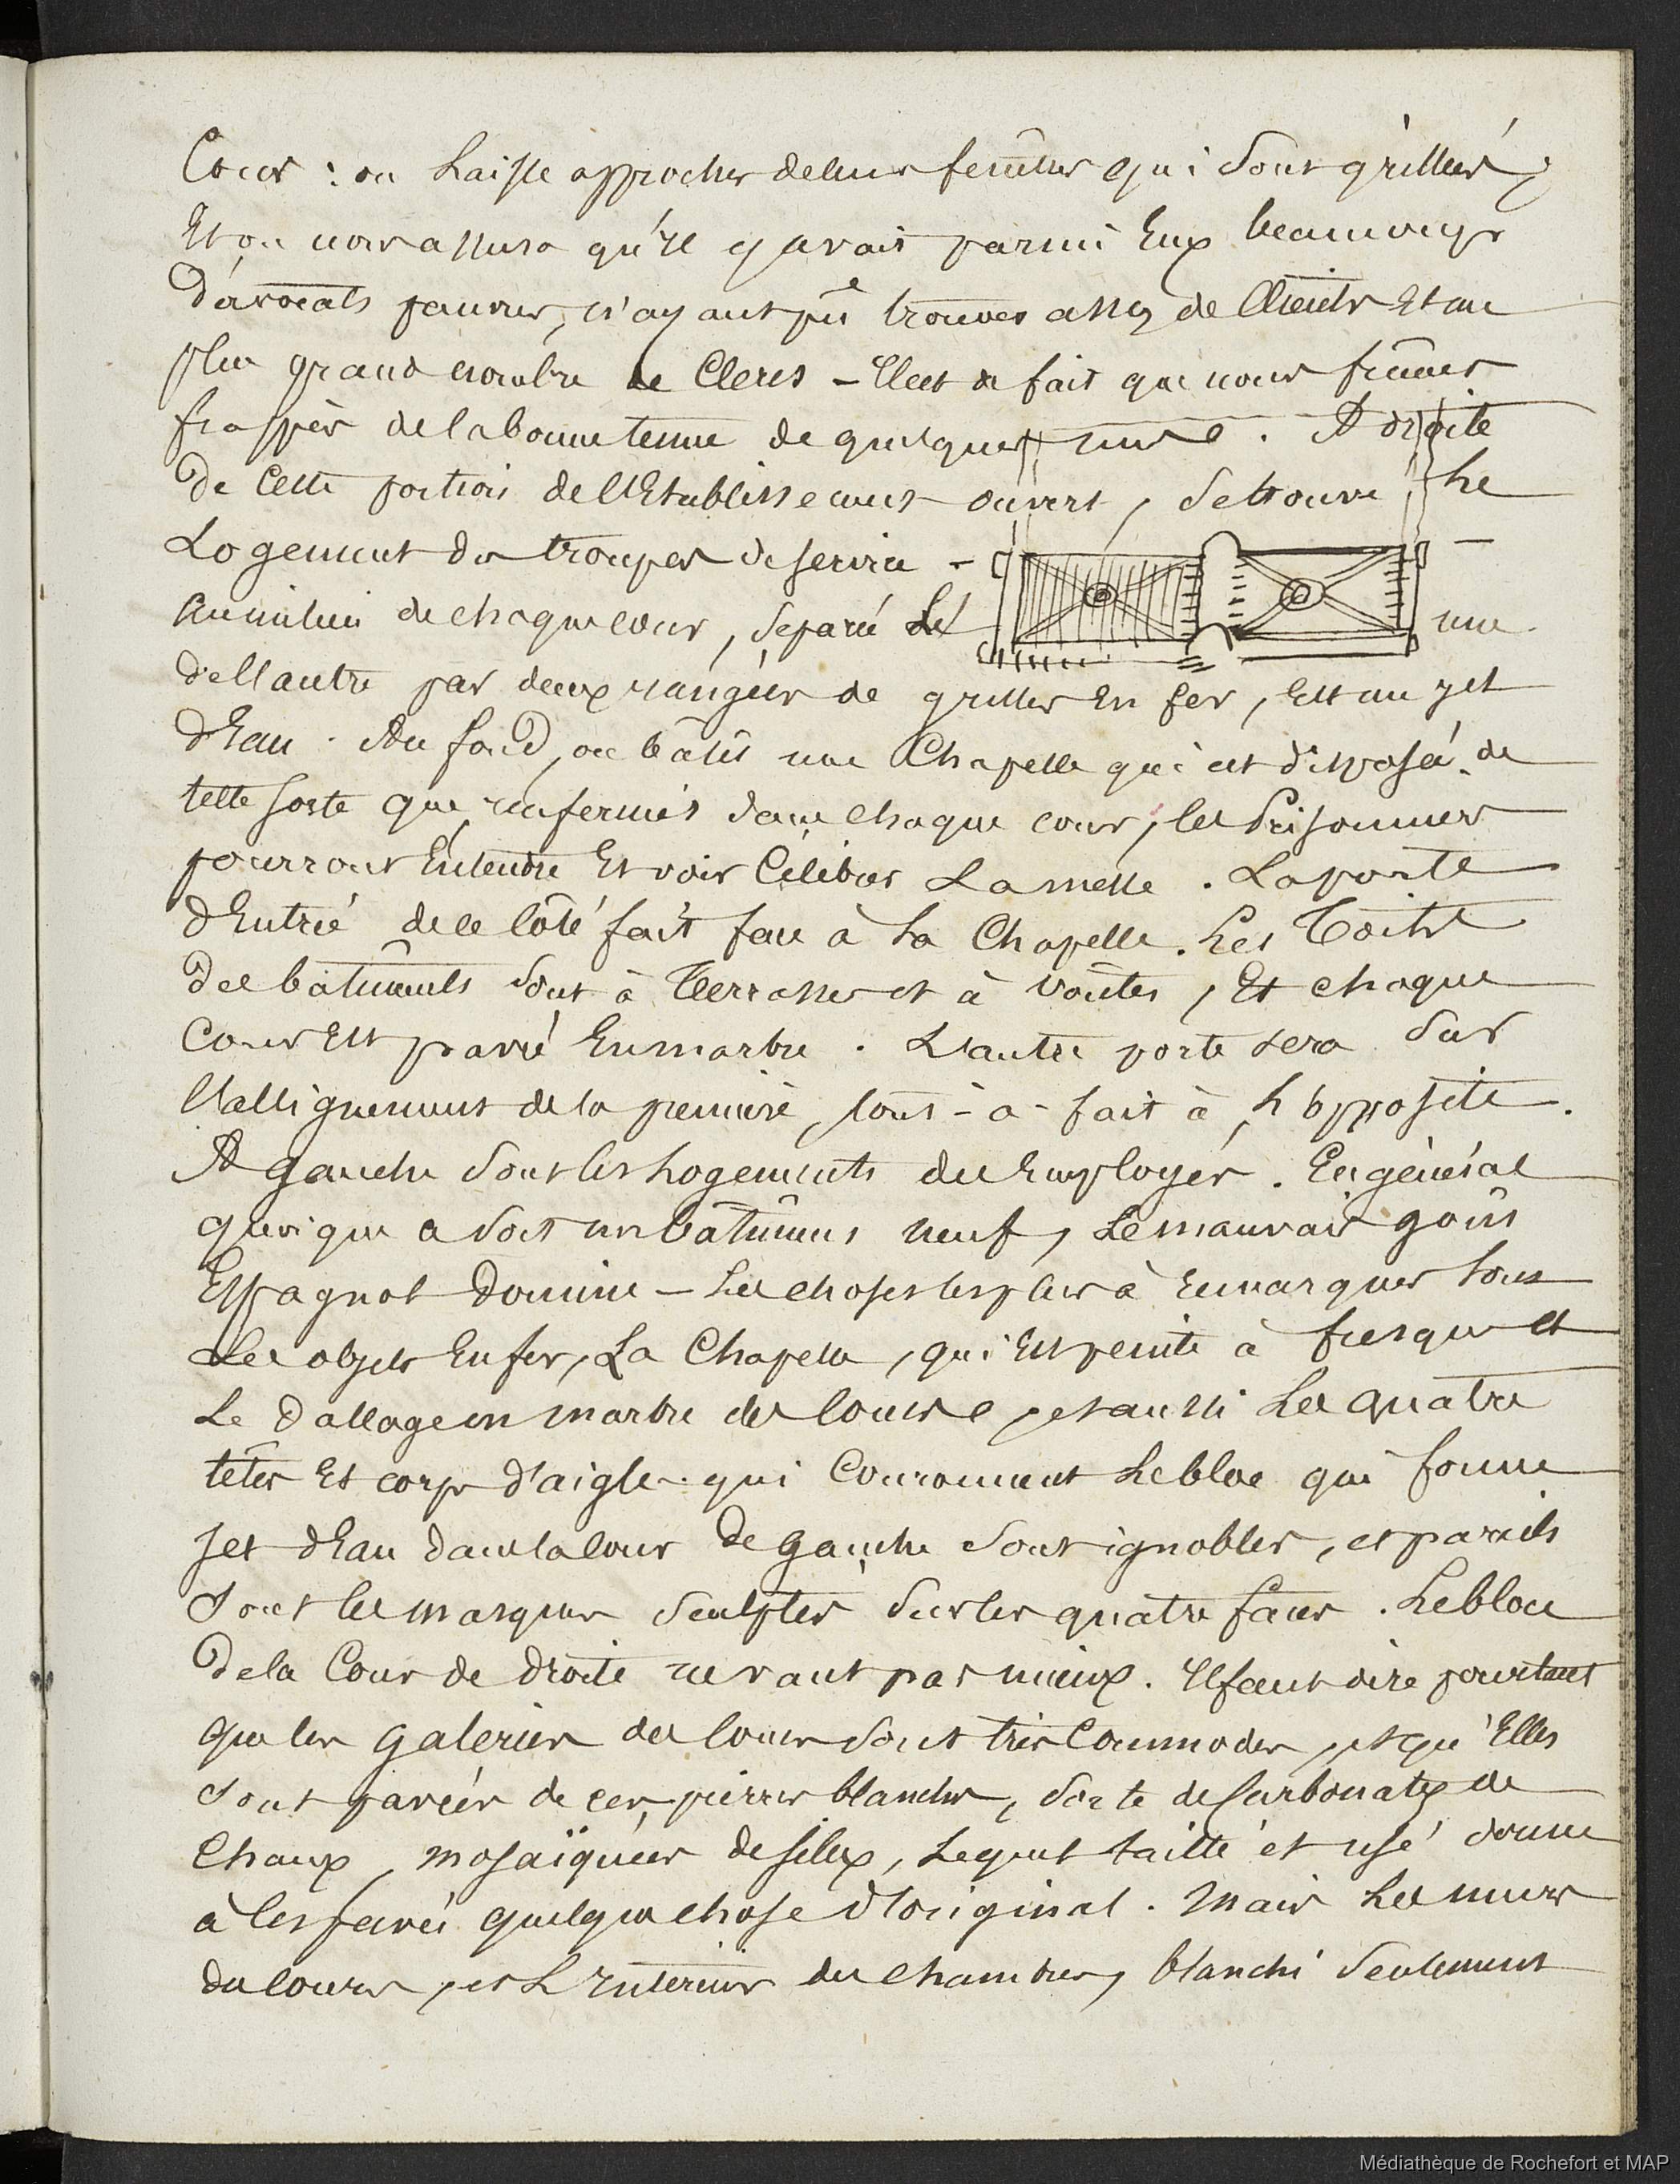 Cour : on Laisse approcher de leurs fenêtres qui Sont grillées ;
Et on nous assura qu'Il y avait parmi Eux beaucoup
d'avocats pauvres, n'ayant pû trouver assez de Clients Et un
plus grand nombre de Clercs - Il est de fait que nous fûmes
frappés de la bonne tenue de quelques uns. A droite
De Cette portion de l'Etablissement ouvert, Se trouve Le
Logement des troupes de service -
Au milieu de chaque cour, Separée L' une
de l'autre par deux rangées de grilles En fer, Est un jet
d'Eau. Au fond, on bâtit une Chapelle qui est disposée de
telle sorte que renfermés dans chaque cour, les Prisonniers
pourront Entendre Et voir Célébrer La messe. La porte
d'Entrée de ce Côté fait face à La Chapelle. Les Toits
Des bâtiments Sont à Terrasses et à Voûtes, Et chaque
Cour Est pavée En marbre. L'autre porte sera Sur
l'allignement de la première, tout-à-fait à L'opposite.
A gauche Sont les Logements des Employés. En général
quoique ce Soit un bâtiment neuf, Le mauvais goût
Espagnol Domine - Les choses les plus à Remarquer Sont
Les objets En fer, La Chapelle, qui Est peinte à fresque et
Le Dallage en marbre des Cours, et aussi Les quatre
têtes Et corps d'aigles qui Couronnent Le bloc qui forme
Jet d'Eau dans la Cour De gauche Sont ignobles, et pareils
Sont les masques Sculptés Sur les quatre faces. Le bloc
De la Cour de Droite ne vaut pas mieux. Il faut dire pourtant
que les galeries des Cours Sont très Commodes, et qu'Elles
Sont pavées de ces pierres blanches, Sorte de Carbonate de
Chaux, mosaïquées de silex, Lequel taillé et usé donne
à Ces pavés quelque chose d'original. Mais Les murs
des Cours, et L'Intérieur des chambres, blanchi Seulement
Médiathèque de Rochefort et MAP